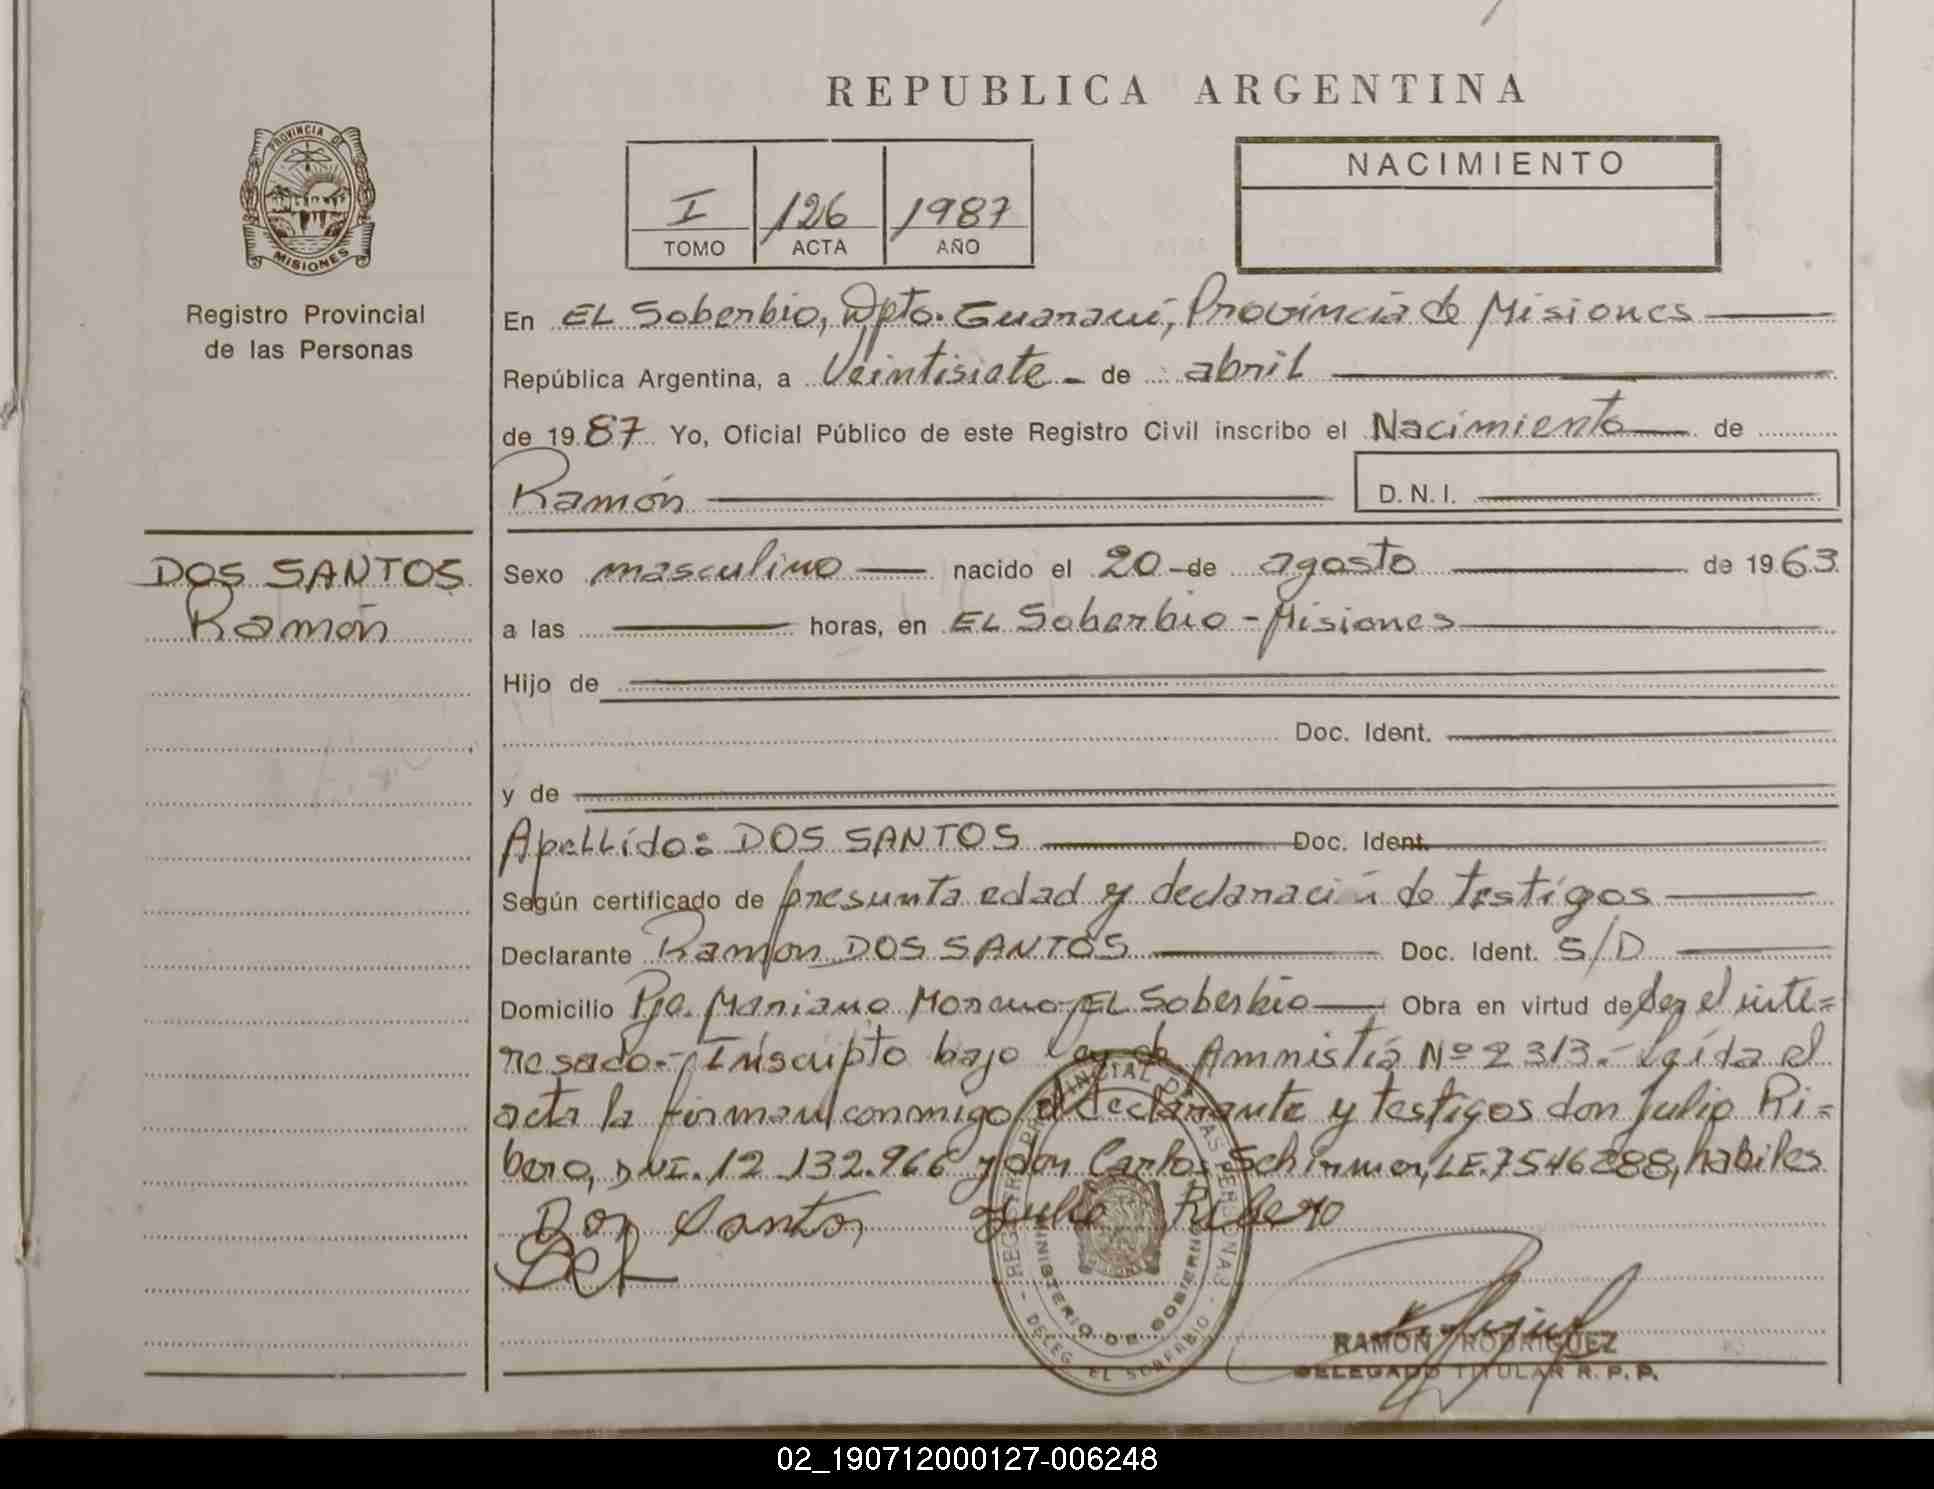 REPUBLICA ARGENTINA
PROVINCIA DE
MISIONES
Registro Provincial
de las Personas
I 126 1987
TOMO ACTA AÑO
NACIMIENTO
En EL Soberbio, Dpto. Guaraní, Provincia de Misiones
República Argentina, a Veintisiete - de abril
de 1987 Yo, Oficial Público de este Registro Civil inscribo el Nacimiento de
Ramón D. N. I.
DOS SANTOS
Ramón
Sexo masculino nacido el 20 - de agosto de 1963
a las horas, en EL Soberbio - Misiones
Hijo de
Doc. Ident.
y de
Apellido: DOS SANTOS Doc. Ident.
Según certificado de presunta edad y declaración de testigos
Declarante Ramon DOS SANTOS Doc. Ident. S/D
Domicilio Pje. Mariano Moreno - EL Soberbio Obra en virtud de ser el inte=
resado.- Inscripto bajo Ley de Amnistía Nº 2313.- Leída el
acta la firman conmigo el declarante y testigos don Julio Ri=
bero, DNI. 12.132.966 y don Carlos Schirmer, LE. 7546288, habiles
Dos Santos Julio Ribero
REGISTRO PROVINCIAL DE LAS PERSONAS
MINISTERIO DE GOBIERNO
- DELEG. EL SOBERBIO -
RAMON RODRIGUEZ
DELEGADO TITULAR R. P. P.
02_190712000127-006248